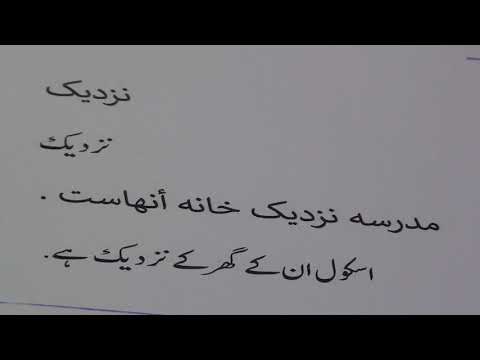 نزدیک
نزدیک
مدرسه نزدیک خانه أنهاست .
اسکول ان کے گھر کے نزدیک ہے۔